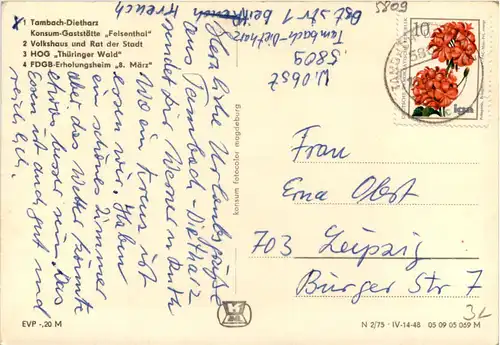 1 Tambach-Dietharz
Konsum-Gaststätte „Felsenthal"
2 Volkshaus und Rat der Stadt
3 HOG „Thüringer Wald"
4 FDGB-Erholungsheim „8. März"
Herzliche Urlaubsgrüße
aus Tambach-Dietharz
sendet Dir Werner u. Ruth
Wo ein Kreuz ist
essen wir. Haben
ein schönes Zimmer
aber das Wetter könnte
etwas besser sein. Das
Essen ist auch gut und
reichlich.
bei Kreuch
Str 1
Tambach-Dietharz
5809
5809
10
iga
konsum fotocolor magdeburg
Frau
Erna Obst
703 Leipzig
Burger Str 7
EVP -,20 M
N 2/75 · IV-14-48 05 09 05 059 M